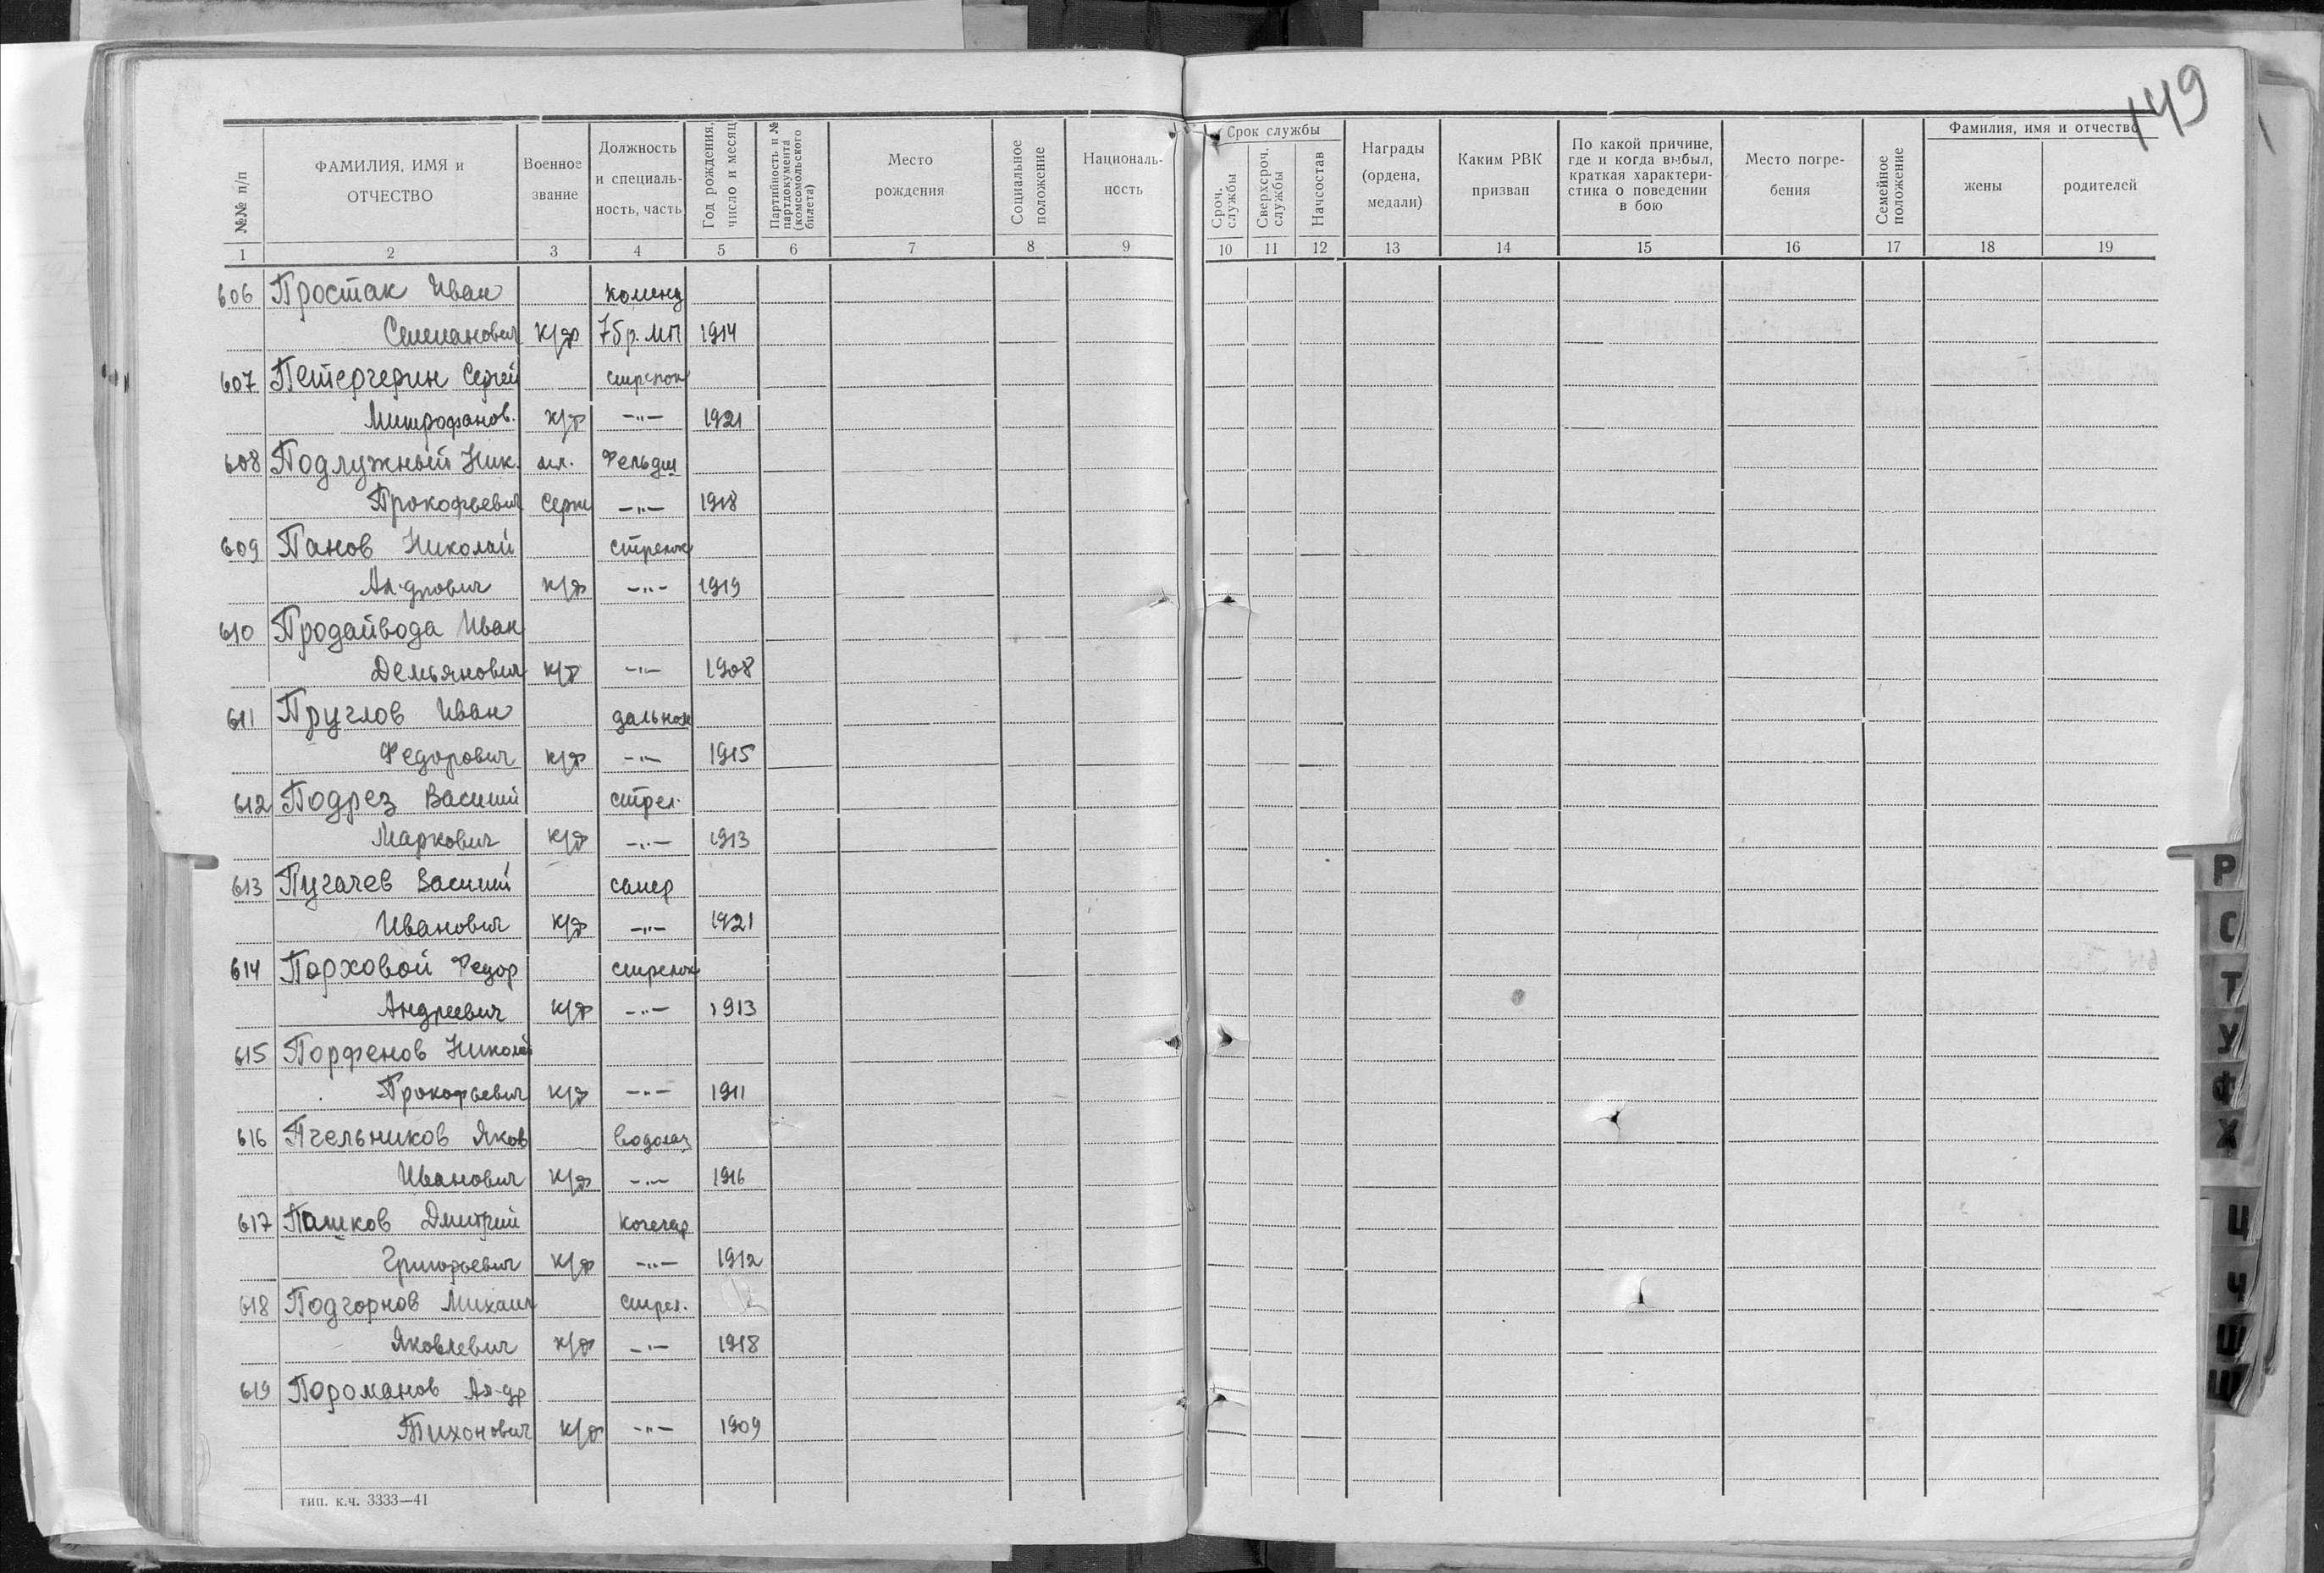 149
№№ п/п
ФАМИЛИЯ, ИМЯ и ОТЧЕСТВО
Военное звание
Должность и специаль-ность, часть
Год рождения, число и месяц
Партийность и № партдокумента (комсомольского билета)
Место рождения
Социальное положение
Националь-ность
Срок службы
Сроч. службы
Сверхсроч. службы
Начсостав
Награды (ордена, медали)
Каким РВК призван
По какой причине, где и когда выбыл, краткая характери-стика о поведении в бою
Место погре-бения
Семейное положение
Фамилия, имя и отчество
жены
родителей
1 2 3 4 5 6 7 8 9 10 11 12 13 14 15 16 17 18 19
606 Простак Иван коменд
Семенович к/ф 7бр. МП 1914
607 Петергерин Сергей стрелок
Митрофанов. к/ф -"- 1921
608 Подлужный Ник. мл. Фельдш
Прокофьевич Серж -"- 1918
609 Панов Николай стрелок
Ал-дрович к/ф -"- 1919
610 Продайвода Иван
Демьянович к/ф -"- 1908
611 Пруглов Иван дальном
Федорович к/ф -"- 1915
612 Подрез Василий стрел.
Маркович к/ф -"- 1913
613 Пугачев Василий сапер
Иванович к/ф -"- 1921
614 Порховой Федор стрелок
Андреевич к/ф -"- 1913
615 Порфенов Николай
Прокофьевич к/ф -"- 1911
616 Пчельников Яков водолаз
Иванович к/ф -"- 1916
617 Пашков Дмитрий кочегар
Григорьевич к/ф -"- 1912
618 Подгорнов Михаил стрел.
Яковлевич к/ф -"- 1918
619 Пороманов Ал-др
Тихонович к/ф -"- 1909
тип. к.ч. 3333—41
Р
С
Т
У
Ф
Х
Ц
Ч
Ш
Щ